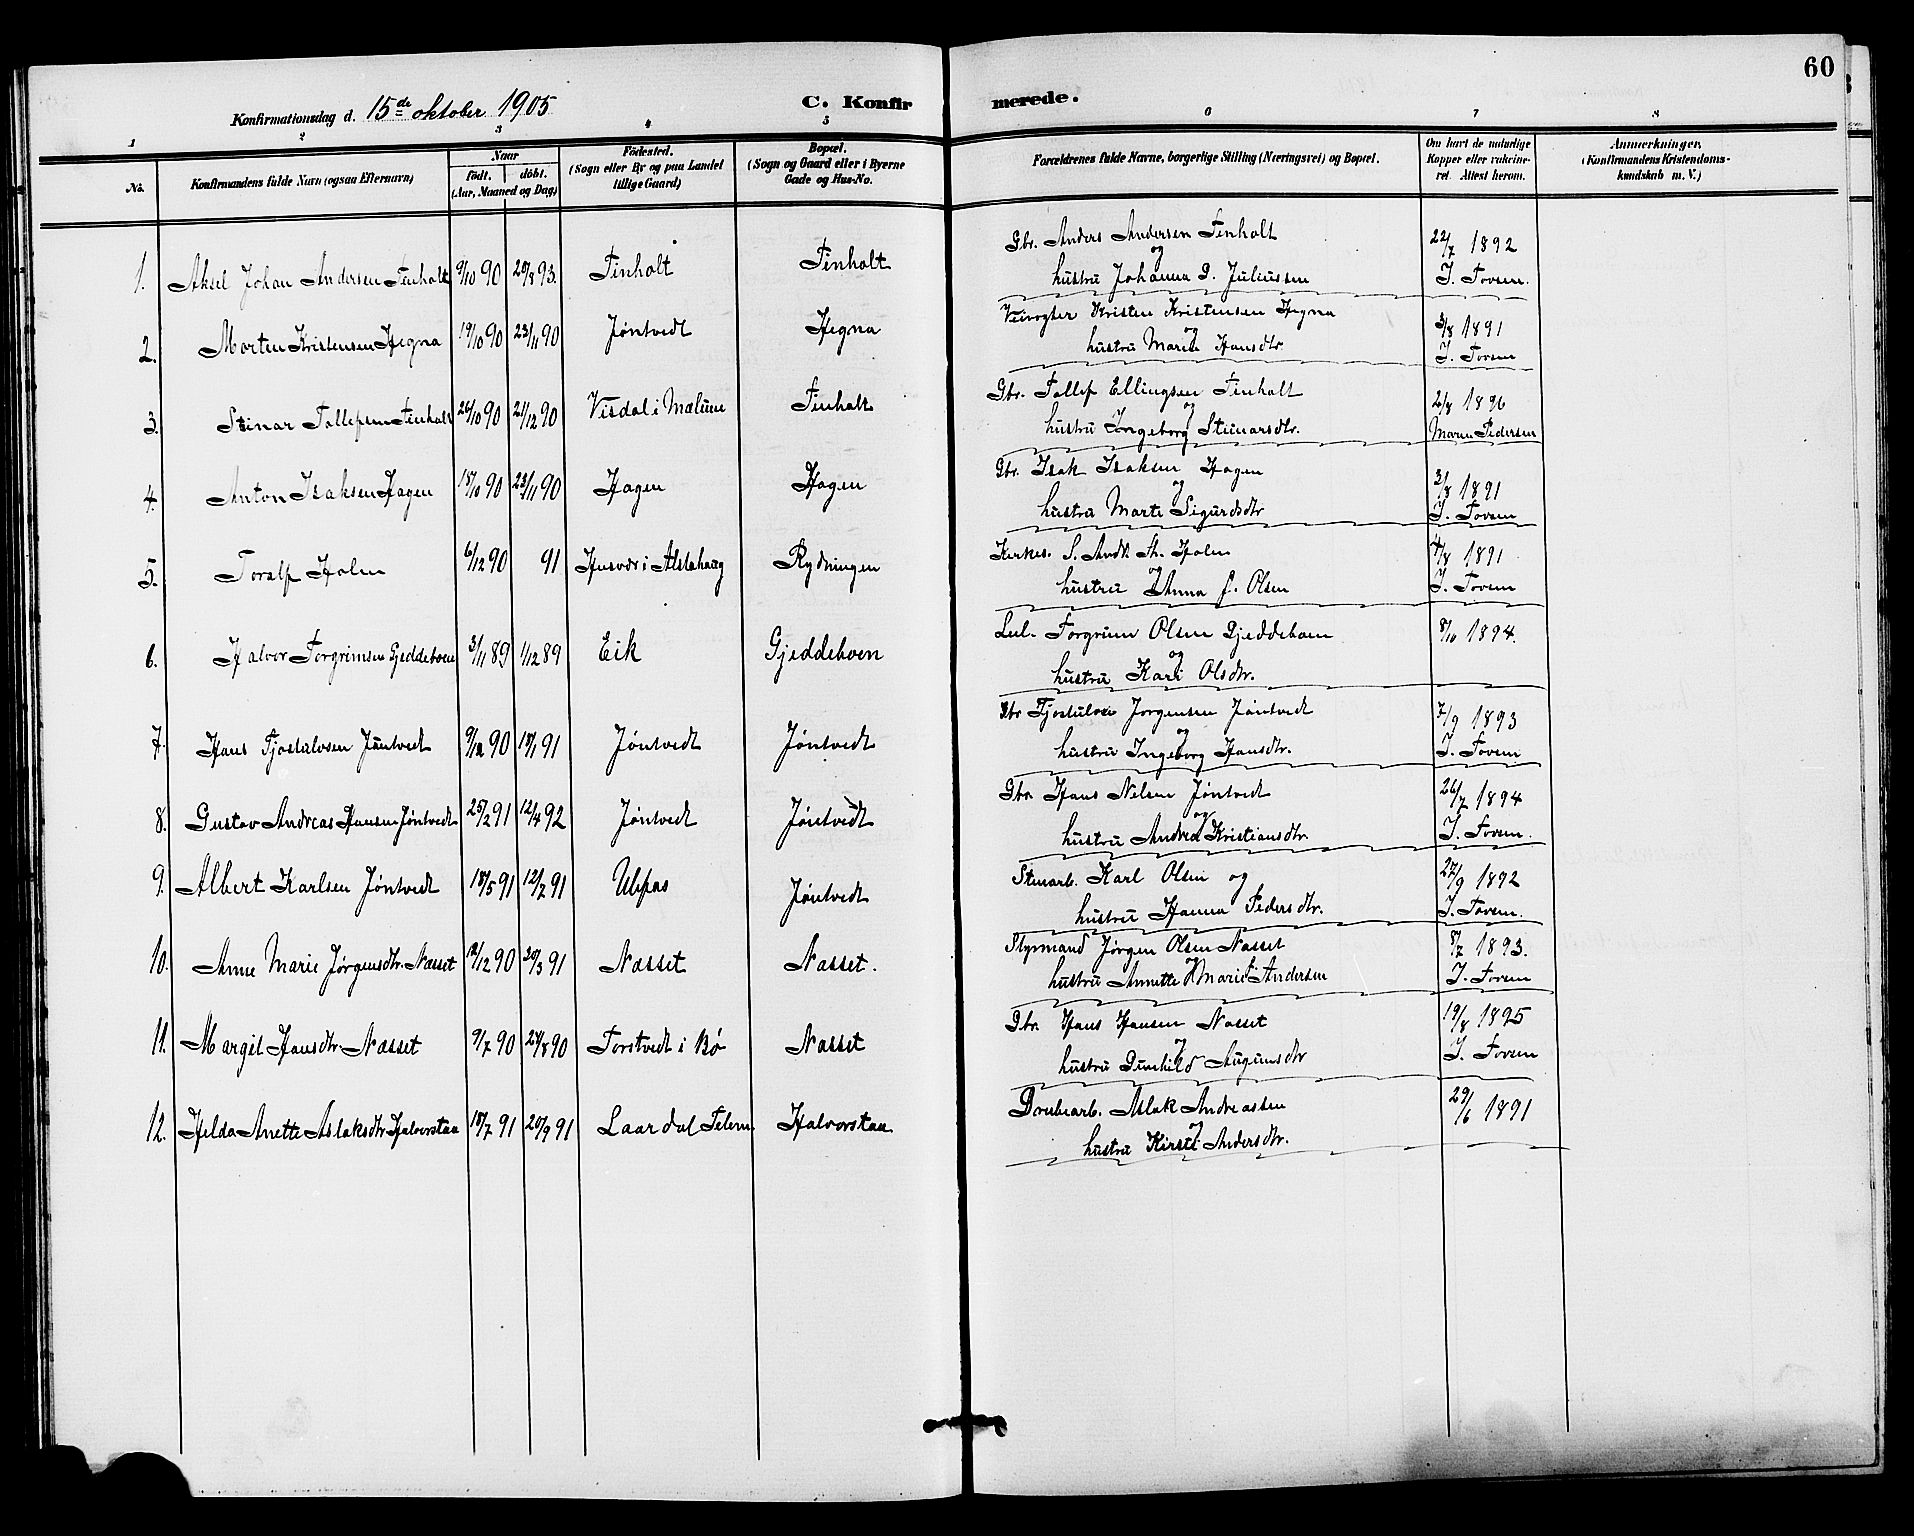 60
Konfirmationsdag d. 15de oktober 1905
C. Konfirmerede.
1 2 3 4 5 6 7 8
No.
Konfirmandens fulde Navn (ogsaa Efternavn)
Naar
født. døbt.
(Aar, Maaned og Dag)
Fødested.
(Sogn eller By og paa Landet
tillige Gaard)
Bopæl.
(Sogn og Gaard eller i Byerne
Gade og Hus-No.
Forældrenes fulde Navne, borgerlige Stilling (Næringsvei) og Bopæl.
Om havt de naturlige
Kopper eller vakcine-
ret. Attest herom.
Anmerkninger.
(Konfirmandens Kristendoms-
kundskab m. V.)
1. Aksel Johan Andersen Finholt 9/10 90 20/8 93. Finholt Finholt Gbr. Anders Andersen Finholt 22/7 1892
og
hustru Johanna D. Juliussen J. Tovsen.
2. Morten Kristensen Hegna 19/10 90 23/11 90 Jøntvedt Hegna Veivogter Kristen Kristensen Hegna 3/8 1891
og
hustru Maren Hansdtr J. Tovsen
3. Steinar Tollefsen Finholt 26/10 90 21/12 90 Visdal i Mælum Finholt Gbr. Tollef Ellingsen Finholt 2/8 1896
og
hustru Ingeborg Steinarsdtr. Maren Pedersen
4. Anton Isaksen Hagen 18/10 90 23/11 90 Hagen Hagen Gbr. Isak Isaksen Hagen 3/8 1891
og
hustru Marte Sigurdsdtr J. Tovsen
5. Toralf Holm 6/12 90 91 Husvær i Alstahaug Rydningen Kirkes. S. Andr. Th. Holm 4/8 1891
og
hustru Anna J. Olsen J. Tovsen
6. Halvor Torgrimsen Gjeddeboen 3/11 89 1/12 89 Eik Gjeddeboen Leil. Torgrim Olsen Gjeddeboen 8/10 1894.
og
hustru Kari Olsdtr.
7. Hans Tjostulvsen Jøntvedt 9/12 90 18/1 91 Jøntvedt Jøntvedt Gbr Tjostulv Jørgensen Jøntvedt 7/9 1893
og
hustru Ingeborg Hansdtr. J. Tovsen
8. Gustav Andreas Hansen Jøntvedt 25/2 91 12/4 92 Jøntvedt Jøntvedt Gbr Hans Nelsen Jøntvedt 26/7 1894
og
hustru Andrea Kristiansdtr. J. Tovsen.
9. Albert Karlsen Jøntvedt 18/5 91 12/7 91 Ulefos Jøntvedt Stenarb. Karl Olsen og 27/9 1892
hustru Hanna Pedersdtr. J. Tovsen.
10. Anne Marie Jørgensdtr. Næsset 12/12 90 30/3 91 Næsset Næsset. Styrmand Jørgen Olsen Næsset 8/7 1893.
og
hustru Annette Marie Andersen J. Tovsen
11. Margit Hansdtr. Næsset 9/7 90 24/8 90 Torstvedt i Bø Næsset Gbr. Hans Hansen Næsset 19/8 1895
og
hustru Gunhild Augunsdtr J. Tovsen
12. Helda Anette Aslaksdtr Halvorstaa 18/7 91 20/9 91 Laardal Telem. Halvorstaa Grubearb. Aslak Andreassen 29/6 1891
og
hustru Kirsti Andersdtr.